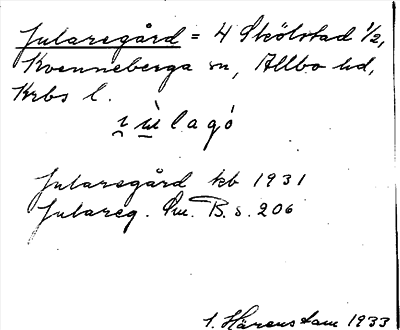 Jularegård = 4 Skölstad 1/2,
Kvenneberga sn, Allbo hd,
Krbs l.
Jularegård kb 1931
Julareg. Sm. B. s. 206
I. Härenstam 1933